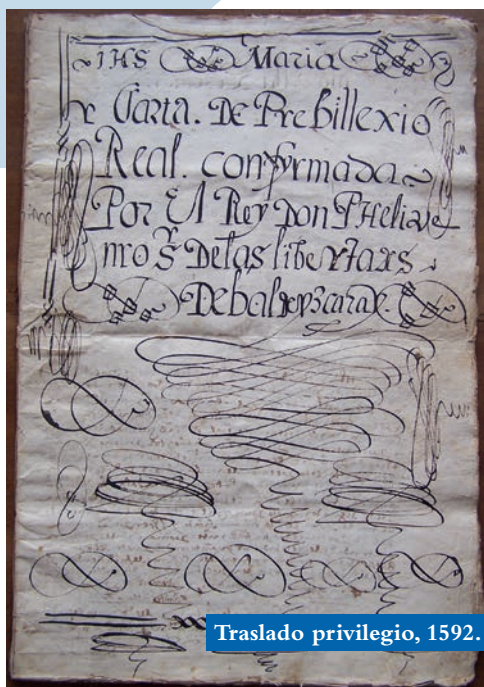 IHS Maria
Carta. De Prebillexio
Real. confyrmada
Por El Rey Don PHelipe
nro Sr De las libertaxs
De baldeyzcaray.
Traslado privilegio, 1592.